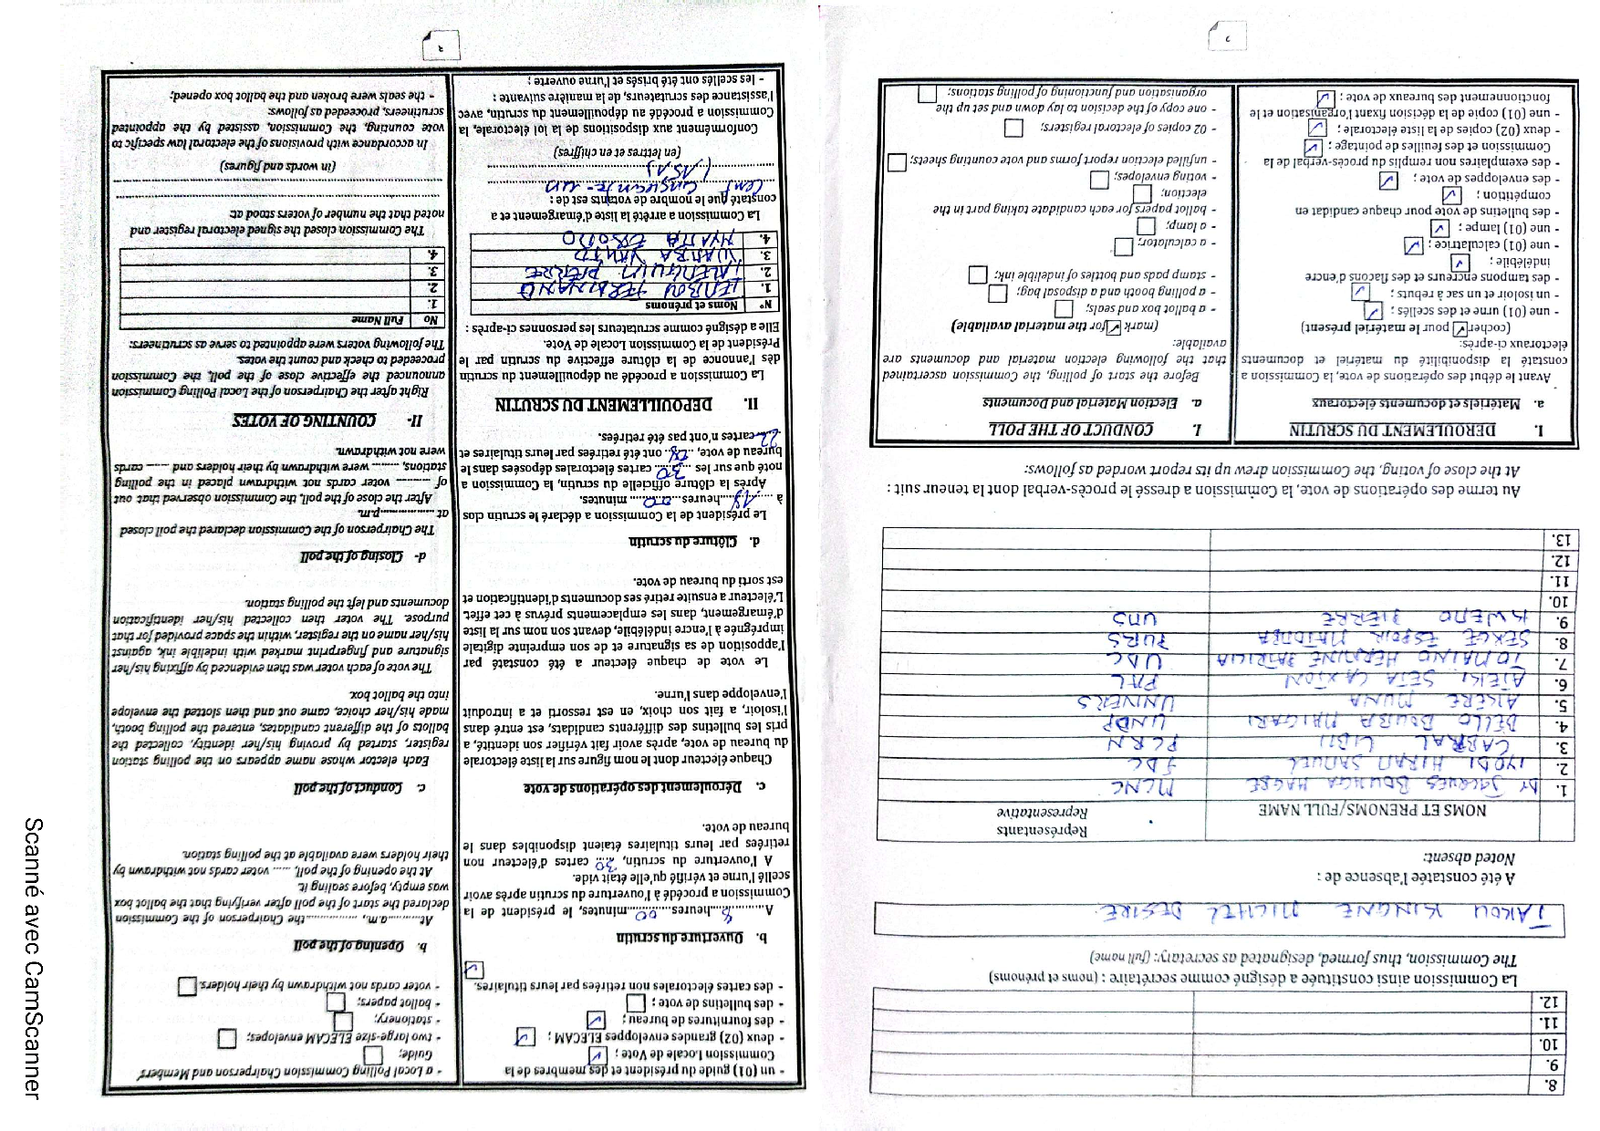 8.
9.
10.
11.
12.
La Commission ainsi constituée a désigné comme secrétaire : (noms et prénoms)
The Commission, thus formed, designated as secretary: (full name)
TAKOU KINGNE MICHEL DESIRE
A été constatée l'absence de :
Noted absent:
NOMS ET PRENOMS/FULL NAME
Représentants
Representative
1. Dr JACQUES BOUNGA HAGBE MCNC
2. IYODI HIRAM SAMUEL FDC
3. CABRAL LIBII PCRN
4. BELLO BOUBA MAIGARI UNDP
5. AKERE MUNA UNIVERS
6. ATEKI SETA CAXTON PAL
7. TOMAINO HERMINE PATRICIA UDC
8. SERGE ESPOIR MATOMBA PURS
9. KWEMO PIERRE UMS
10.
11.
12.
13.
Au terme des opérations de vote, la Commission a dressé le procès-verbal dont la teneur suit :
At the close of voting, the Commission drew up its report worded as follows:
I. DEROULEMENT DU SCRUTIN
a. Matériels et documents électoraux
Avant le début des opérations de vote, la Commission a
constaté la disponibilité du matériel et documents
électoraux ci-après:
(cocher ✓ pour le matériel présent)
- une (01) urne et des scellés ; ✓
- un isoloir et un sac à rebuts ; ✓
- des tampons encreurs et des flacons d'encre
indélébile ; ✓
- une (01) calculatrice ; ✓
- une (01) lampe ; ✓
- des bulletins de vote pour chaque candidat en
compétition ; ✓
- des enveloppes de vote ; ✓
- des exemplaires non remplis du procès-verbal de la
Commission et des feuilles de pointage ; ✓
- deux (02) copies de la liste électorale ; ✓
- une (01) copie de la décision fixant l'organisation et le
fonctionnement des bureaux de vote ; ✓
I. CONDUCT OF THE POLL
a. Election Material and Documents
Before the start of polling, the Commission ascertained
that the following election material and documents are
available:
(mark ✓ for the material available)
- a ballot box and seals;
- a polling booth and a disposal bag;
- stamp pads and bottles of indelible ink;
- a calculator;
- a lamp;
- ballot papers for each candidate taking part in the
election;
- voting envelopes;
- unfilled election report forms and vote counting sheets;
- 02 copies of electoral registers;
- one copy of the decision to lay down and set up the
organisation and functioning of polling stations;
2
- un (01) guide du président et des membres de la
Commission Locale de Vote ; ✓
- deux (02) grandes enveloppes ELECAM ; ✓
- des fournitures de bureau ; ✓
- des bulletins de vote ;
- des cartes électorales non retirées par leurs titulaires. ✓
b. Ouverture du scrutin
A....8....heures...00...minutes, le président de la
Commission a procédé à l'ouverture du scrutin après avoir
scellé l'urne et vérifié qu'elle était vide.
A l'ouverture du scrutin, 30 cartes d'électeur non
retirées par leurs titulaires étaient disponibles dans le
bureau de vote.
c. Déroulement des opérations de vote
Chaque électeur dont le nom figure sur la liste électorale
du bureau de vote, après avoir fait vérifier son identité, a
pris les bulletins des différents candidats, est entré dans
l'isoloir, a fait son choix, en est ressorti et a introduit
l'enveloppe dans l'urne.
Le vote de chaque électeur a été constaté par
l'apposition de sa signature et de son empreinte digitale
imprégnée à l'encre indélébile, devant son nom sur la liste
d'émargement, dans les emplacements prévus à cet effet.
L'électeur a ensuite retiré ses documents d'identification et
est sorti du bureau de vote.
d. Clôture du scrutin
Le président de la Commission a déclaré le scrutin clos
à ....18....heures....00....minutes.
Après la clôture officielle du scrutin, la Commission a
noté que sur les ...30... cartes électorales déposées dans le
bureau de vote, ..08.. ont été retirées par leurs titulaires et
22 cartes n'ont pas été retirées.
II. DEPOUILLEMENT DU SCRUTIN
La Commission a procédé au dépouillement du scrutin
dès l'annonce de la clôture effective du scrutin par le
Président de la Commission Locale de Vote.
Elle a désigné comme scrutateurs les personnes ci-après :
N° Noms et prénoms
1. FERDINAND
2. PIERRE
3.
4.
La Commission a arrêté la liste d'émargement et a
constaté que le nombre de votants est de :
Cent cinquante-un
(151)
(en lettres et en chiffres)
Conformément aux dispositions de la loi électorale, la
Commission a procédé au dépouillement du scrutin, avec
l'assistance des scrutateurs, de la manière suivante :
- les scellés ont été brisés et l'urne ouverte ;
- a Local Polling Commission Chairperson and Members'
Guide;
- two large-size ELECAM envelopes;
- stationery;
- ballot papers;
- voter cards not withdrawn by their holders.
b. Opening of the poll
At..........a.m., ................the Chairperson of the Commission
declared the start of the poll after verifying that the ballot box
was empty, before sealing it.
At the opening of the poll, ..... voter cards not withdrawn by
their holders were available at the polling station.
c. Conduct of the poll
Each elector whose name appears on the polling station
register, started by proving his/her identity, collected the
ballots of the different candidates, entered the polling booth,
made his/her choice, came out and then slotted the envelope
into the ballot box.
The vote of each voter was then evidenced by affixing his/her
signature and fingerprint marked with indelible ink, against
his/her name on the register, within the space provided for that
purpose. The voter then collected his/her identification
documents and left the polling station.
d- Closing of the poll
The Chairperson of the Commission declared the poll closed
at ................p.m.
After the close of the poll, the Commission observed that out
of -------- voter cards not withdrawn placed in the polling
stations, ------- were withdrawn by their holders and ------ cards
were not withdrawn.
II- COUNTING OF VOTES
Right after the Chairperson of the Local Polling Commission
announced the effective close of the poll, the Commission
proceeded to check and count the votes.
The following voters were appointed to serve as scrutineers:
No Full Name
1.
2.
3.
4.
The Commission closed the signed electoral register and
noted that the number of voters stood at:
(in words and figures)
In accordance with provisions of the electoral law specific to
vote counting, the Commission, assisted by the appointed
scrutineers, proceeded as follows:
- the seals were broken and the ballot box opened;
3
Scanné avec CamScanner